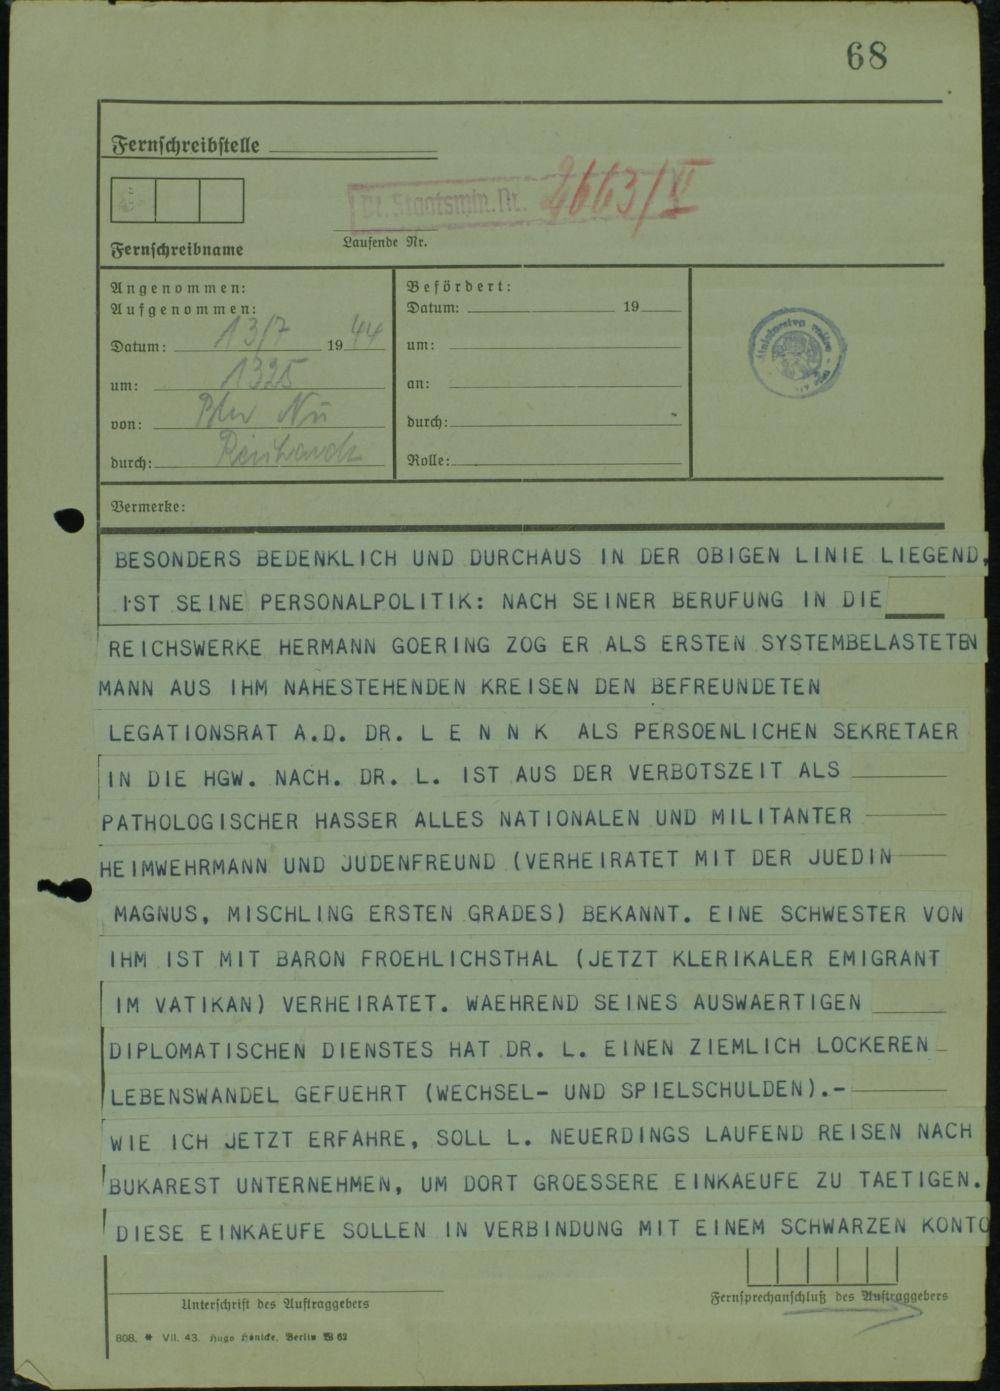 68
Fernschreibstelle
Dt. Staatsmin. Nr. 2663/VI
Laufende Nr.
Fernschreibname
Angenommen:
Aufgenommen:
Datum: 13/7 1944
um: 1325
von: Nü
durch:
Befördert:
Datum: 19
um:
an:
durch:
Rolle:
Vermerke:
BESONDERS BEDENKLICH UND DURCHAUS IN DER OBIGEN LINIE LIEGEND,
IST SEINE PERSONALPOLITIK: NACH SEINER BERUFUNG IN DIE
REICHSWERKE HERMANN GOERING ZOG ER ALS ERSTEN SYSTEMBELASTETEN
MANN AUS IHM NAHESTEHENDEN KREISEN DEN BEFREUNDETEN
LEGATIONSRAT A.D. DR. L E N N K ALS PERSOENLICHEN SEKRETAER
IN DIE HGW. NACH. DR. L. IST AUS DER VERBOTSZEIT ALS
PATHOLOGISCHER HASSER ALLES NATIONALEN UND MILITANTER
HEIMWEHRMANN UND JUDENFREUND (VERHEIRATET MIT DER JUEDIN
MAGNUS, MISCHLING ERSTEN GRADES) BEKANNT. EINE SCHWESTER VON
IHM IST MIT BARON FROEHLICHSTHAL (JETZT KLERIKALER EMIGRANT
IM VATIKAN) VERHEIRATET. WAEHREND SEINES AUSWAERTIGEN
DIPLOMATISCHEN DIENSTES HAT DR. L. EINEN ZIEMLICH LOCKEREN
LEBENSWANDEL GEFUEHRT (WECHSEL- UND SPIELSCHULDEN).-
WIE ICH JETZT ERFAHRE, SOLL L. NEUERDINGS LAUFEND REISEN NACH
BUKAREST UNTERNEHMEN, UM DORT GROESSERE EINKAEUFE ZU TAETIGEN.
DIESE EINKAEUFE SOLLEN IN VERBINDUNG MIT EINEM SCHWARZEN KONTO
Unterschrift des Auftraggebers
Fernsprechanschluß des Auftraggebers
808. * VII. 43. Hugo Hänicke, Berlin W 62